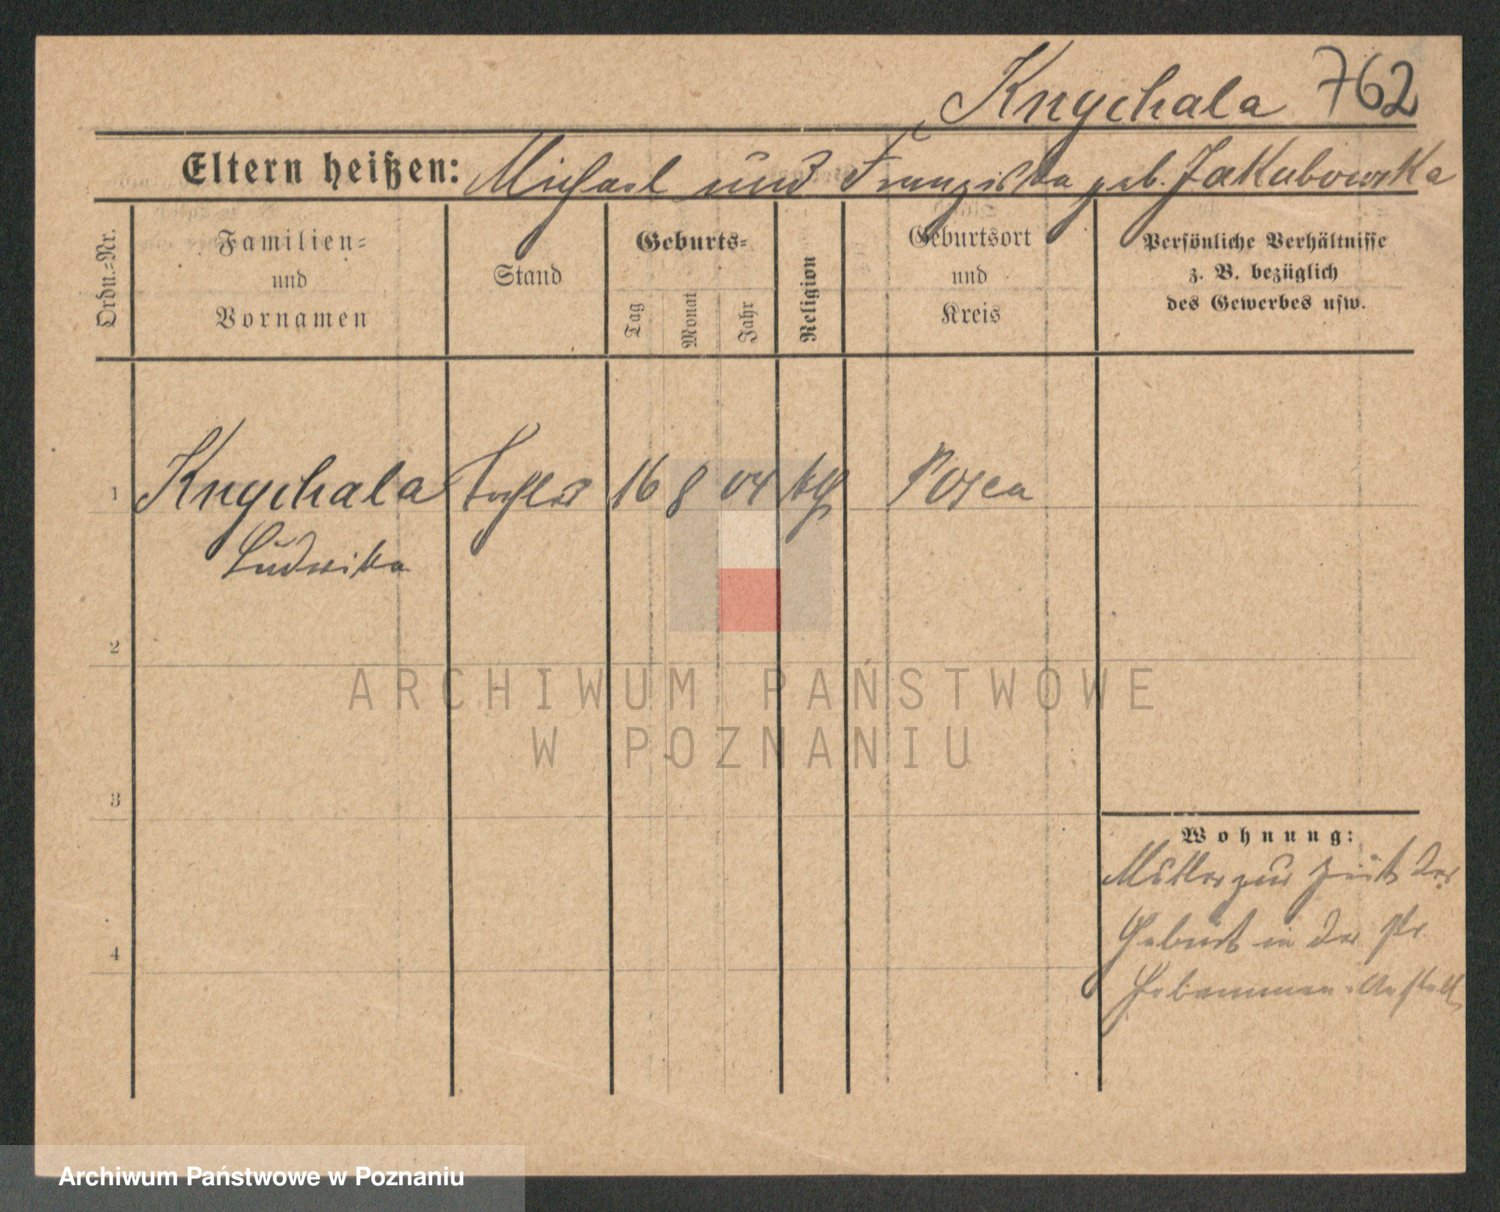 Knychala 762
Eltern heißen: Michael und Franziska geb. Jakubowska
Ordn.=Nr.
Familien=
und
Vornamen
Stand
Geburts=
Tag
Monat
Jahr
Religion
Geburtsort
und
Kreis
Persönliche Verhältnisse
z. B. bezüglich
des Gewerbes usw.
1 Knychala Tochter 16 8 04 kth Posen
Ludwika
2
3
4
Wohnung:
Mutter zur Zeit der
Geburt in der Pr.
Hebammen-Anstalt
ARCHIWUM PAŃSTWOWE
W POZNANIU
Archiwum Państwowe w Poznaniu